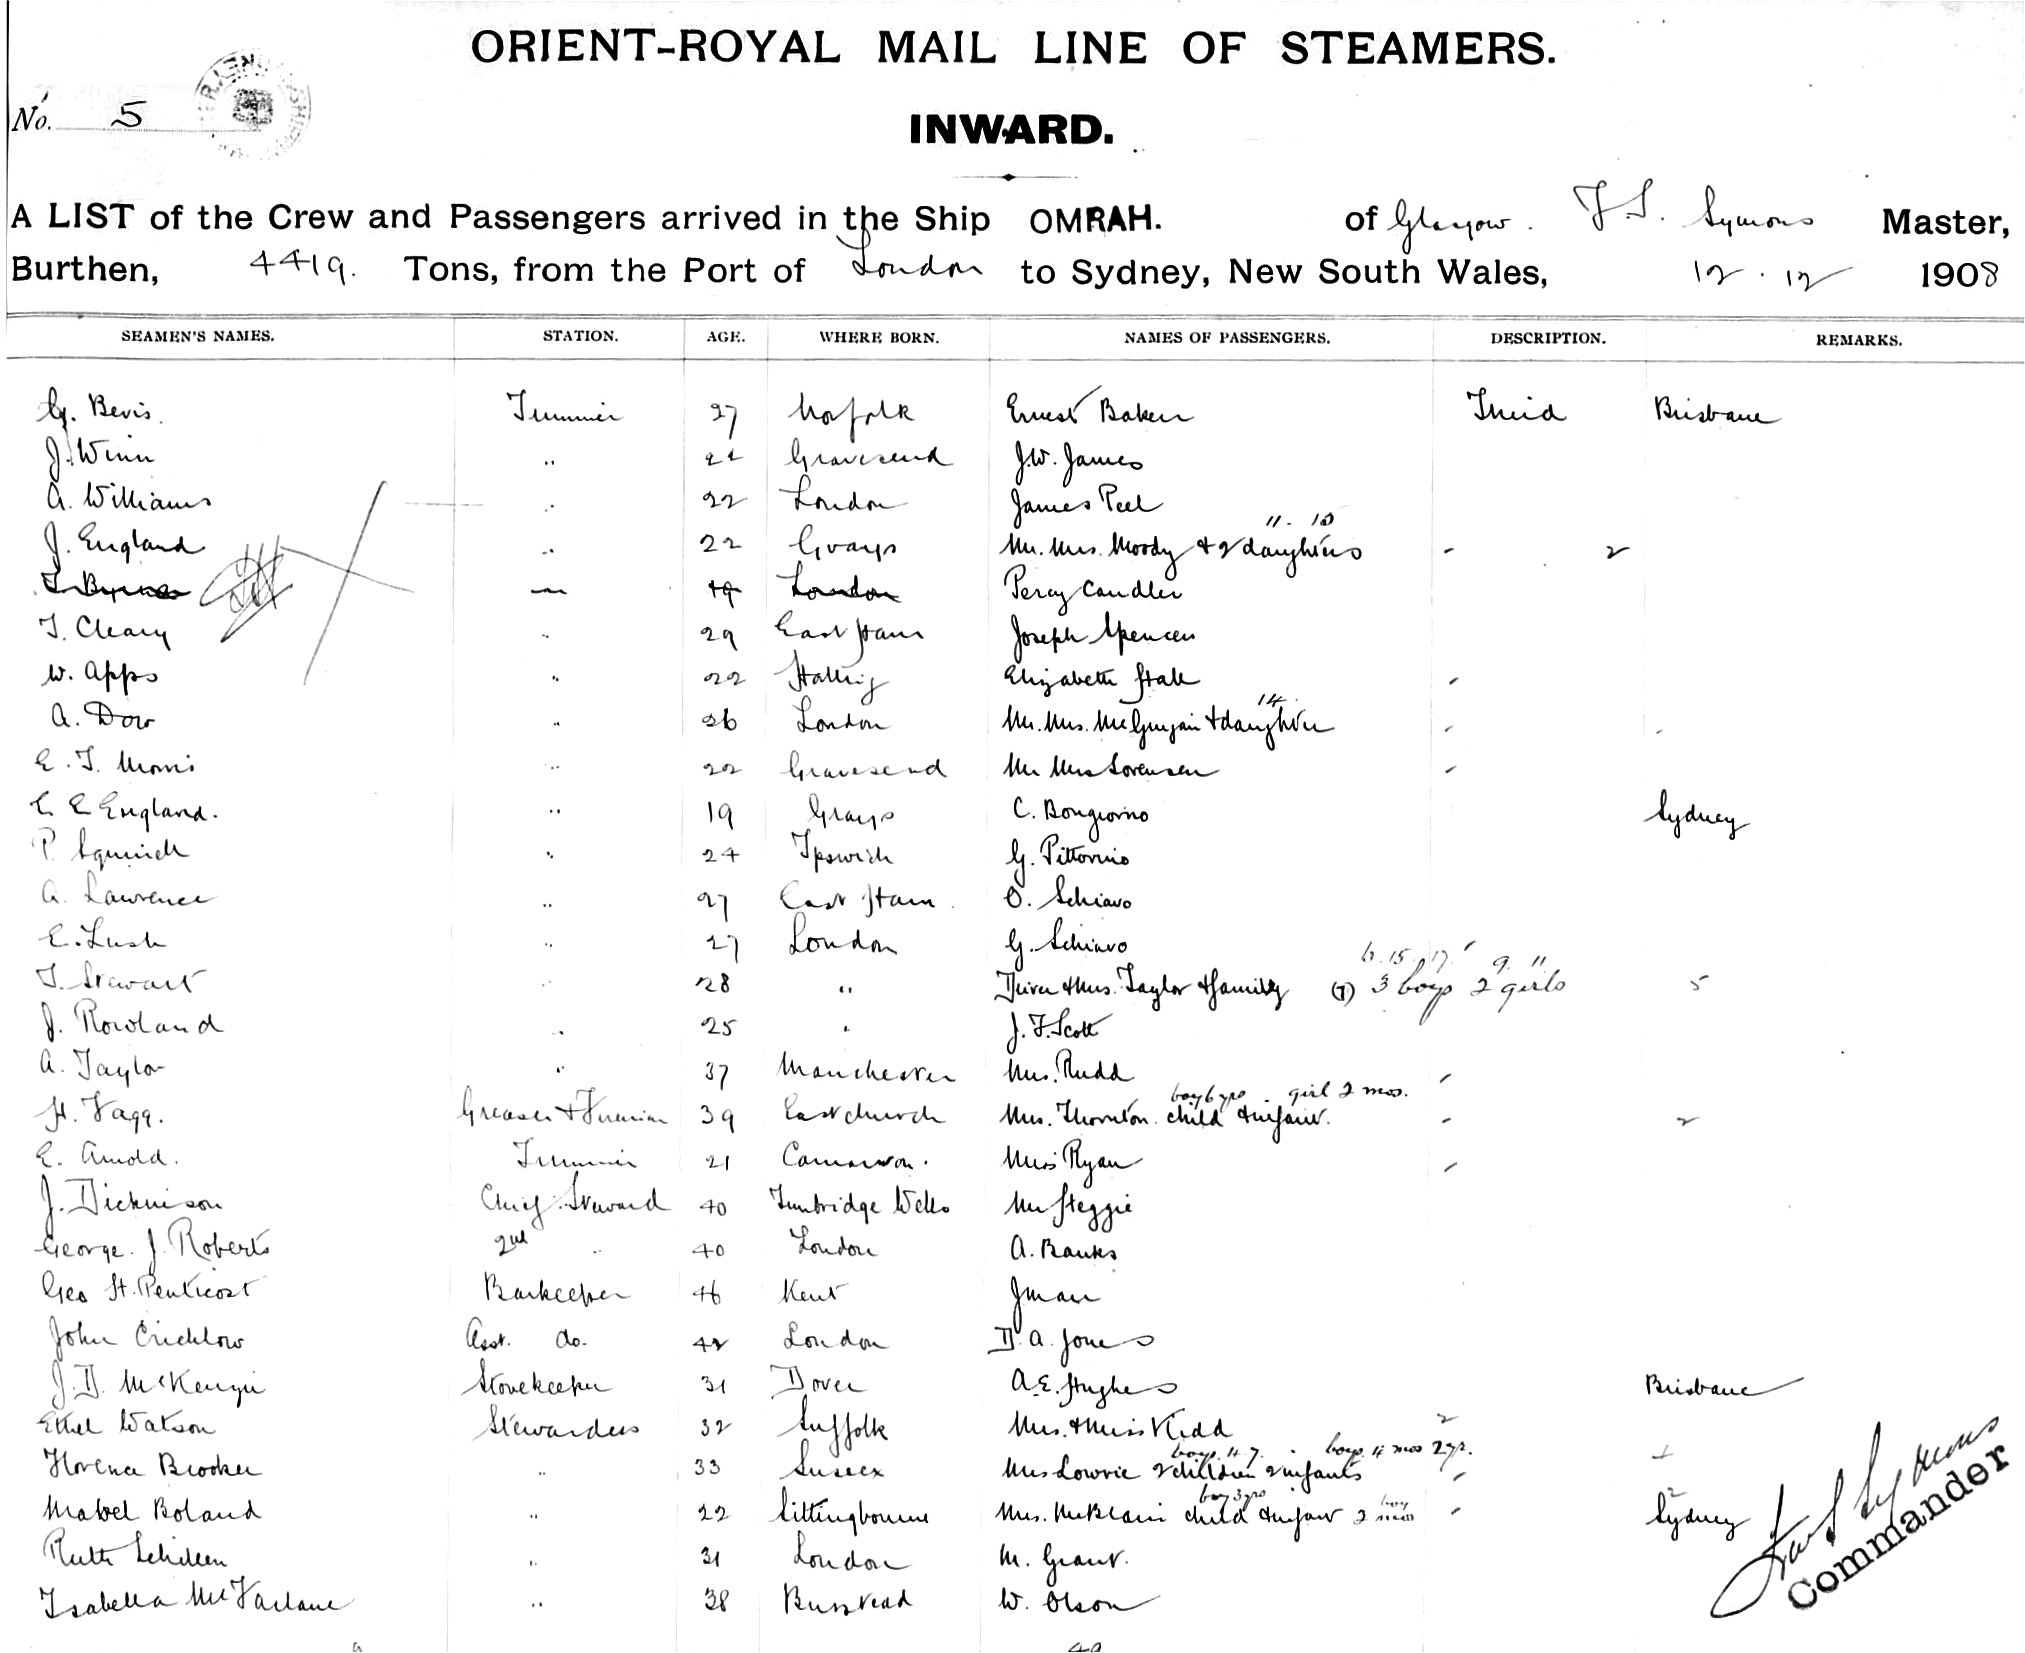 ORIENT-ROYAL MAIL LINE OF STEAMERS.
No. 5
INWARD.
A LIST of the Crew and Passengers arrived in the Ship OMRAH. of Glasgow. F S. Symons Master,
Burthen, 4419. Tons, from the Port of London to Sydney, New South Wales, 12.12 1908
SEAMEN'S NAMES. STATION. AGE. WHERE BORN. NAMES OF PASSENGERS. DESCRIPTION. REMARKS.
G. Bevis. Trimmer 27 Norfolk Ernest Baker Third Brisbane
J. Winn " Gravesend J.W. James
A. Williams " 22 London James Peel
11. 10
J. England " 22 Grays Mr. Mrs. Moody & 2 daughters 2
T. Byrnes 19 London Percy Candler
T. Cleary " 29 East Ham Joseph Spencer
W. Apps " 22 Halling Elizabeth Hall
14
A. Dow " 26 London Mr. Mrs. & daughter
E. T. Morris " 22 Gravesend Mr Mrs Sorensen
E England. " 19 Grays C. Bongiorno Sydney
P. Squirrell " 24 Ipswich G. Pittorino
A. Lawrence " 27 East Ham O. Schiavo
E. Lush " 27 London G. Schiavo
15. 17. 9. 11
T. Stewart " 28 " & Mrs. Taylor & family (7) 3 boys 2 girls 5
J. Rowland " 25 " J. F. Scott
A. Taylor " 37 Manchester Mrs. Rudd
boy 6 yrs girl 2 mos.
H. Fagg. Greaser & Fireman 39 Eastchurch Mrs. Thornton. child & infant. 2
E. Arnold. Trimmer 21 Carnarvon. Miss Ryan
J. Dickinson Chief Steward 40 Tunbridge Wells Mr Steggie
George. J. Roberts 2nd " 40 London A. Banks
Geo H. Penticost Barkeeper 46 Kent
John Crichlow Asst. do. 42 London D. A. Jones
J. D. McKenzie Storekeeper 31 Dover A.E. Hughes Brisbane
Ethel Watson Stewardess 32 Suffolk Mrs. & Miss Kidd 2
boys. 4. 7. boys. 4 mos 2 yr.
Florence Brooker " 33 Sussex Mrs Lowrie 2 children 2 infants
boy 3 yrs
Mabel Boland " 22 Sittingbourne Mrs. McBlain child & infant 2 mos boy Sydney 2
Ruth " 31 London M. Grant.
Isabella McFarlane " 38 W. Olson
Symons
Commander